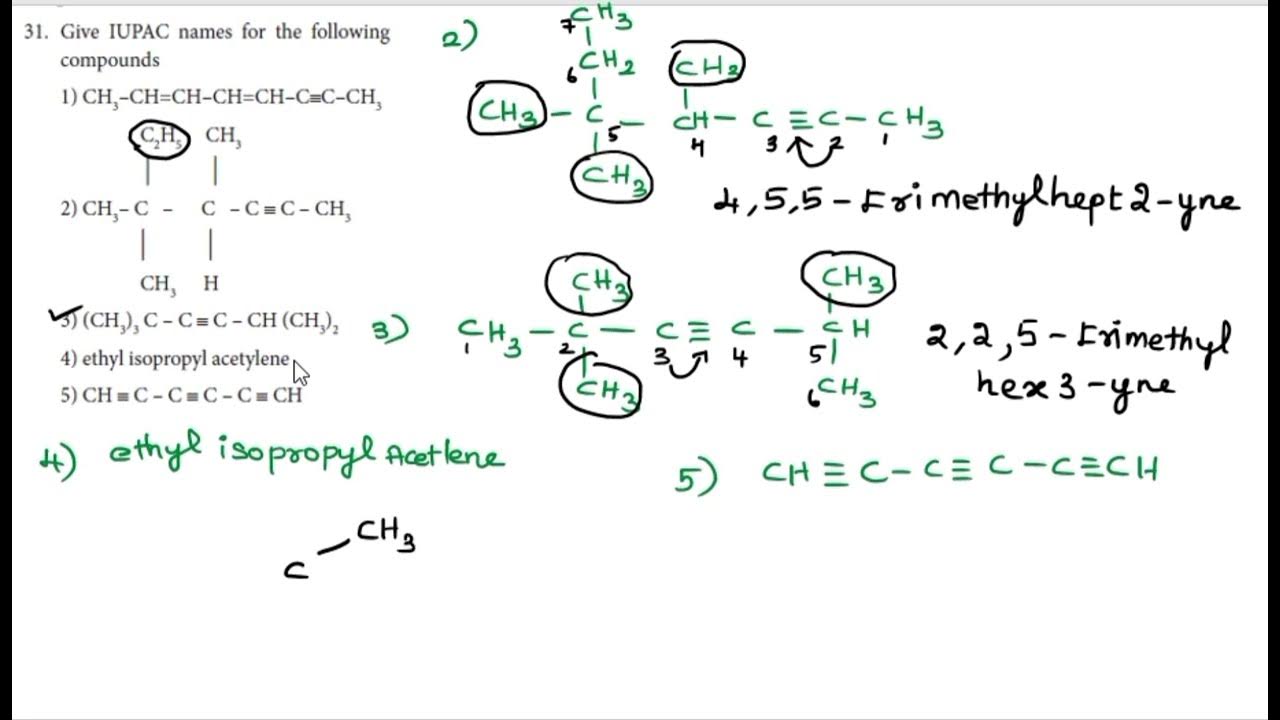 31. Give IUPAC names for the following
compounds
1) CH₃–CH=CH–CH=CH–C≡C–CH₃
C₂H₅ CH₃
| |
2) CH₃– C – C – C ≡ C – CH₃
| |
CH₃ H
3) (CH₃)₃ C – C ≡ C – CH (CH₃)₂
4) ethyl isopropyl acetylene
5) CH ≡ C – C ≡ C – C ≡ CH
2)
7 CH3
|
6 CH2 CH2
| |
CH3 – C – CH – C ≡ C – CH3
5 4 3 2 1
|
CH3
4,5,5 – trimethylhept 2-yne
CH3 CH3
| |
3) CH3 – C – C ≡ C – CH
1 2 3 4 5
| |
CH3 6 CH3
2,2,5 – trimethyl
hex 3-yne
4) ethyl isopropyl Acetlene
CH3
C
5) CH ≡ C – C ≡ C – C ≡ CH